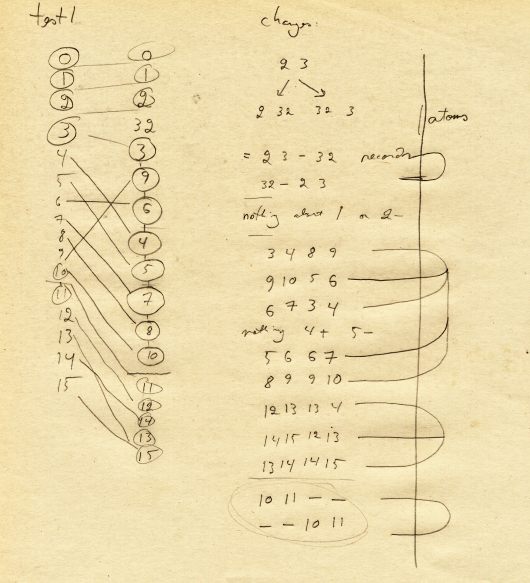 test 1
0 0
1 1
2 2
32
3 3
4 9
5
6 6
7 4
8
9 5
10 7
11 8
12 10
13 11
14 12
15 14
13
15
changes:
2 3
2 32 32 3
= 2 3 - 32 records
32 - 2 3
nothing about 1 or 2 -
3 4 8 9
9 10 5 6
6 7 3 4
nothing 4 + 5 -
5 6 6 7
8 9 9 10
12 13 13 4
14 15 12 13
13 14 14 15
10 11 - -
- - 10 11
atoms